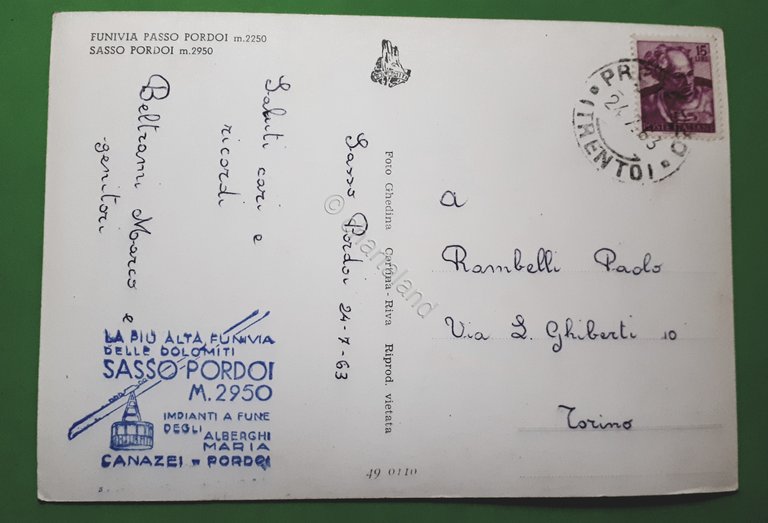 FUNIVIA PASSO PORDOI m.2250
SASSO PORDOI m.2950
Sasso Pordoi 24-7-63
Saluti cari e
ricordi
Beltrami Marco e
genitori
LA PIÙ ALTA FUNIVIA
DELLE DOLOMITI
SASSO PORDOI
M. 2950
IMPIANTI A FUNE
DEGLI ALBERGHI
MARIA
CANAZEI - PORDOI
Foto Ghedina Cortina - Riva Riprod. vietata
49 0110
15
LIRE
POSTE ITALIANE
24.7.63
(TRENTO)
A
Rambelli Paolo
Via L. Ghiberti 10
Torino